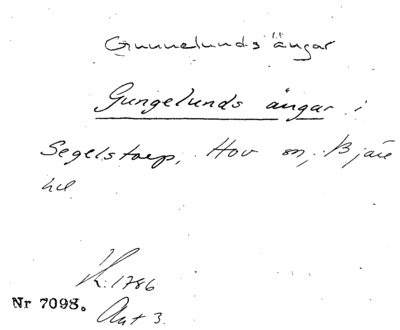 Gunnelunds ängar
Gungelunds ängar i
Segelstorp, Hov sn, Bjäre
hd
K. 1786
Nr 7098.
Akt 3.